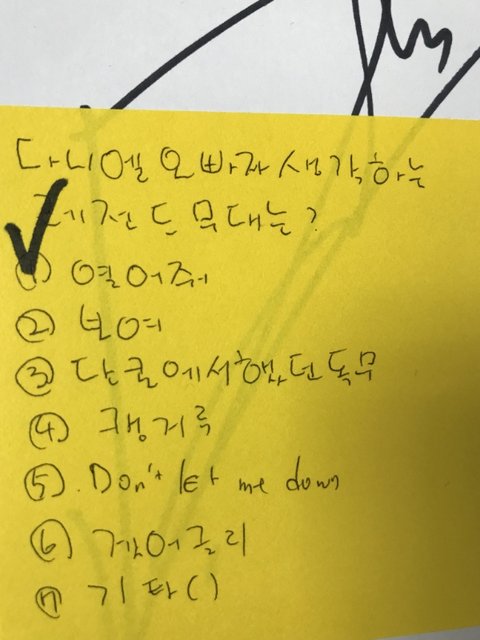 다니엘 오빠가 생각하는
레전드 무대는?
① 열어줘
② 넌여
③ 단콘에서했던독무
④ 캥거루
⑤ Don't let me down
⑥ 겟어글리
⑦ 기타()